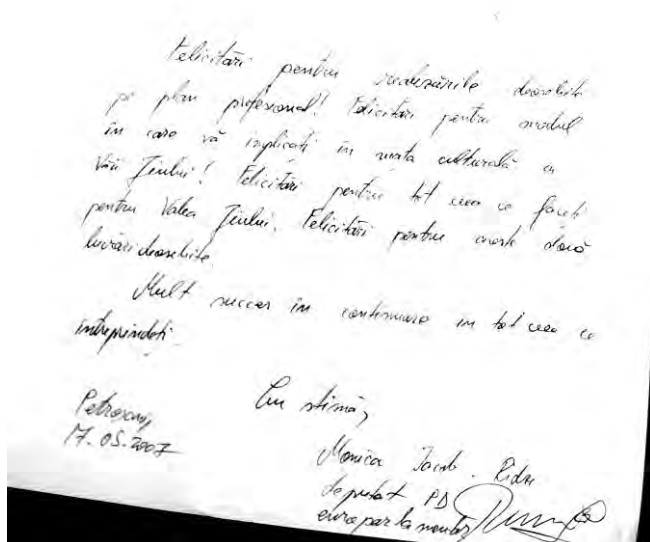 Felicitări pentru realizările deosebite
pe plan profesional! Felicitări pentru modul
în care vă implicați în viața culturală a
Văii Jiului! Felicitări pentru tot ceea ce faceți
pentru Valea Jiului. Felicitări pentru aceste două
lucrări deosebite.
Mult succes în continuare în tot ceea ce
întreprindeți.
Cu stimă,
Petroșani,
17.05.2007
Monica Iacob-Ridzi
deputat PD
europarlamentar